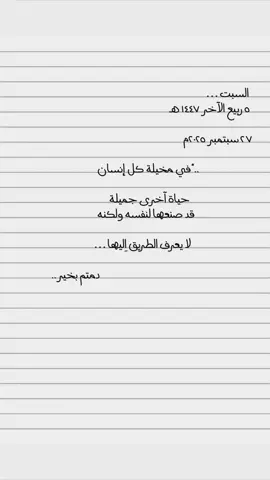 السبت...
٥ ربيع الآخر ١٤٤٧ هـ
٢٧ سبتمبر ٢٠٢٥م
.."في مخيلة كل إنسان
حياة آخرى جميلة
قد صنعها لنفسه ولكنه
لا يعرف الطريق إليها...
دمتم بخير..